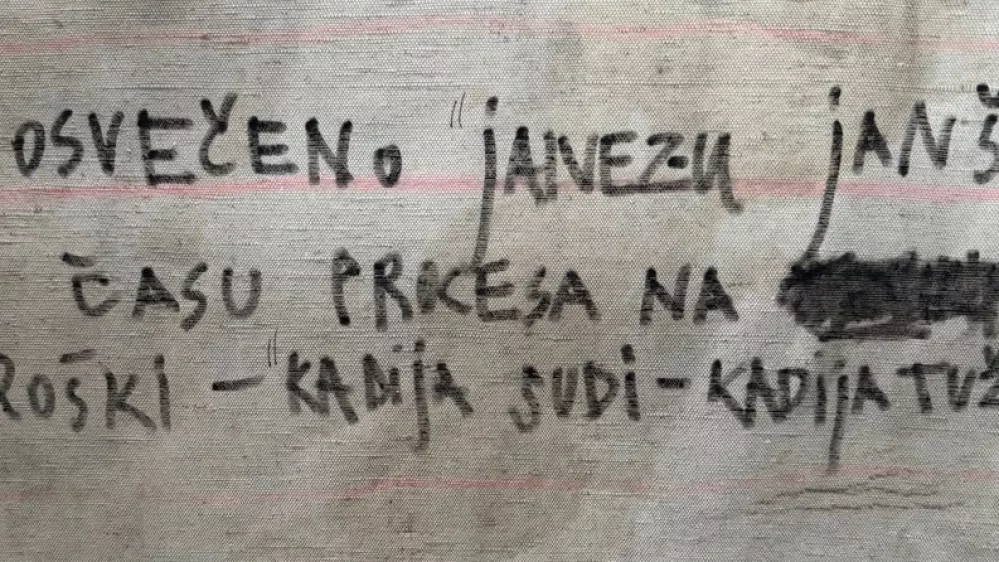 OSVEČENO "JANEZU JANŠ
ČASU PROCESA NA
ROŠKI - "KADIJA SUDI - KADIJA TUŽ